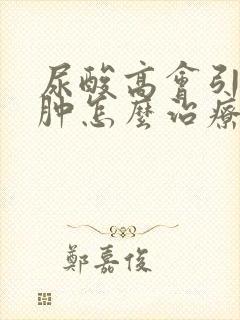 尿酸高會引
肿怎麼治療
鄭嘉俊